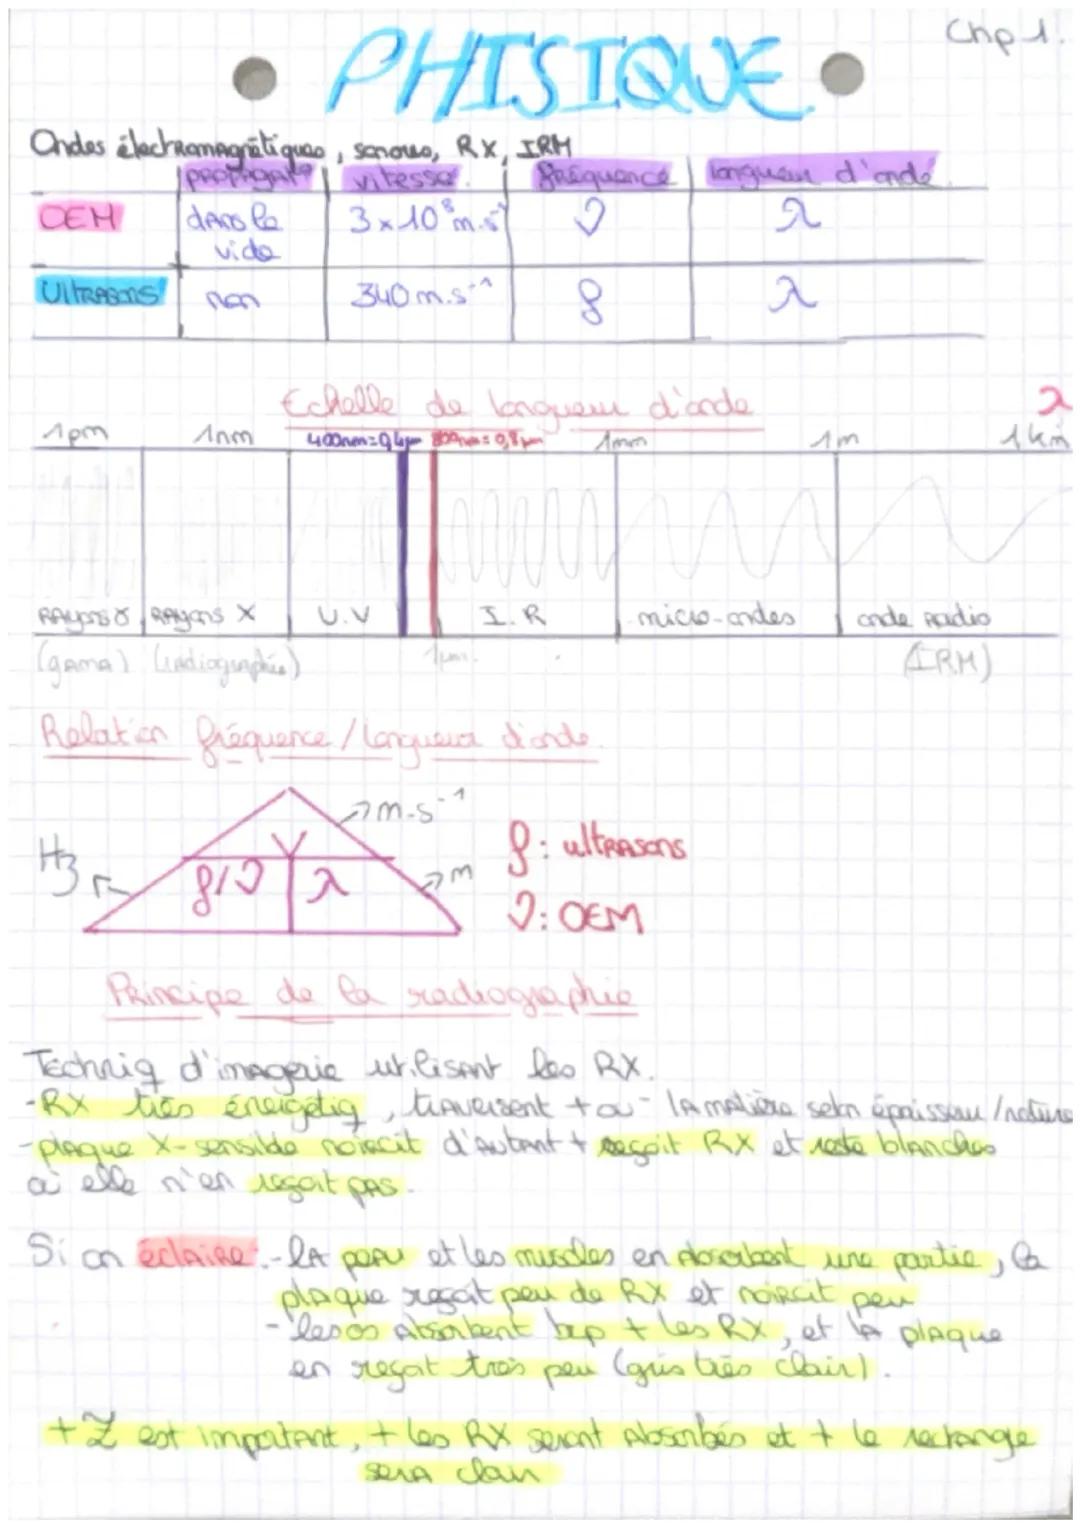 Chp 1.
PHISIQUE
Ondes électromagnétiques, sonores, RX, IRM
propagat° vitesse. fréquence longueur d'onde
OEM dans le vide 3 x 10⁸ m.s⁻¹ ν λ
Ultrasons non 340 m.s⁻¹ f λ
Echelle de longueur d'onde λ
1pm 1nm 400nm=0,4µm 800nm=0,8µm 1mm 1m 1km
Rayons γ Rayons X U.V I.R micro-ondes onde radio
(gama) (radiographie) 1µm. (IRM)
Relation fréquence/longueur d'onde.
m.s⁻¹
Hz V m
f/ν λ
f: ultrasons
ν: OEM
Principe de la radiographie
Techniq d'imagerie utilisant les RX.
-RX très énergétiq, traversent + ou - la matière seln épaisseur/nature
-plaque X-sensible noircit d'autant + reçoit RX et reste blanches
où elle n'en reçoit pas.
Si on éclaire: -la peau et les muscles en absorbent une partie, la
plaque reçoit peu de RX et noircit peu
- les os absorbent bcp + les RX, et la plaque
en reçoit très peu (gris très clair).
+ Z est important, + les RX seront absorbés et + le rectange
sera clair